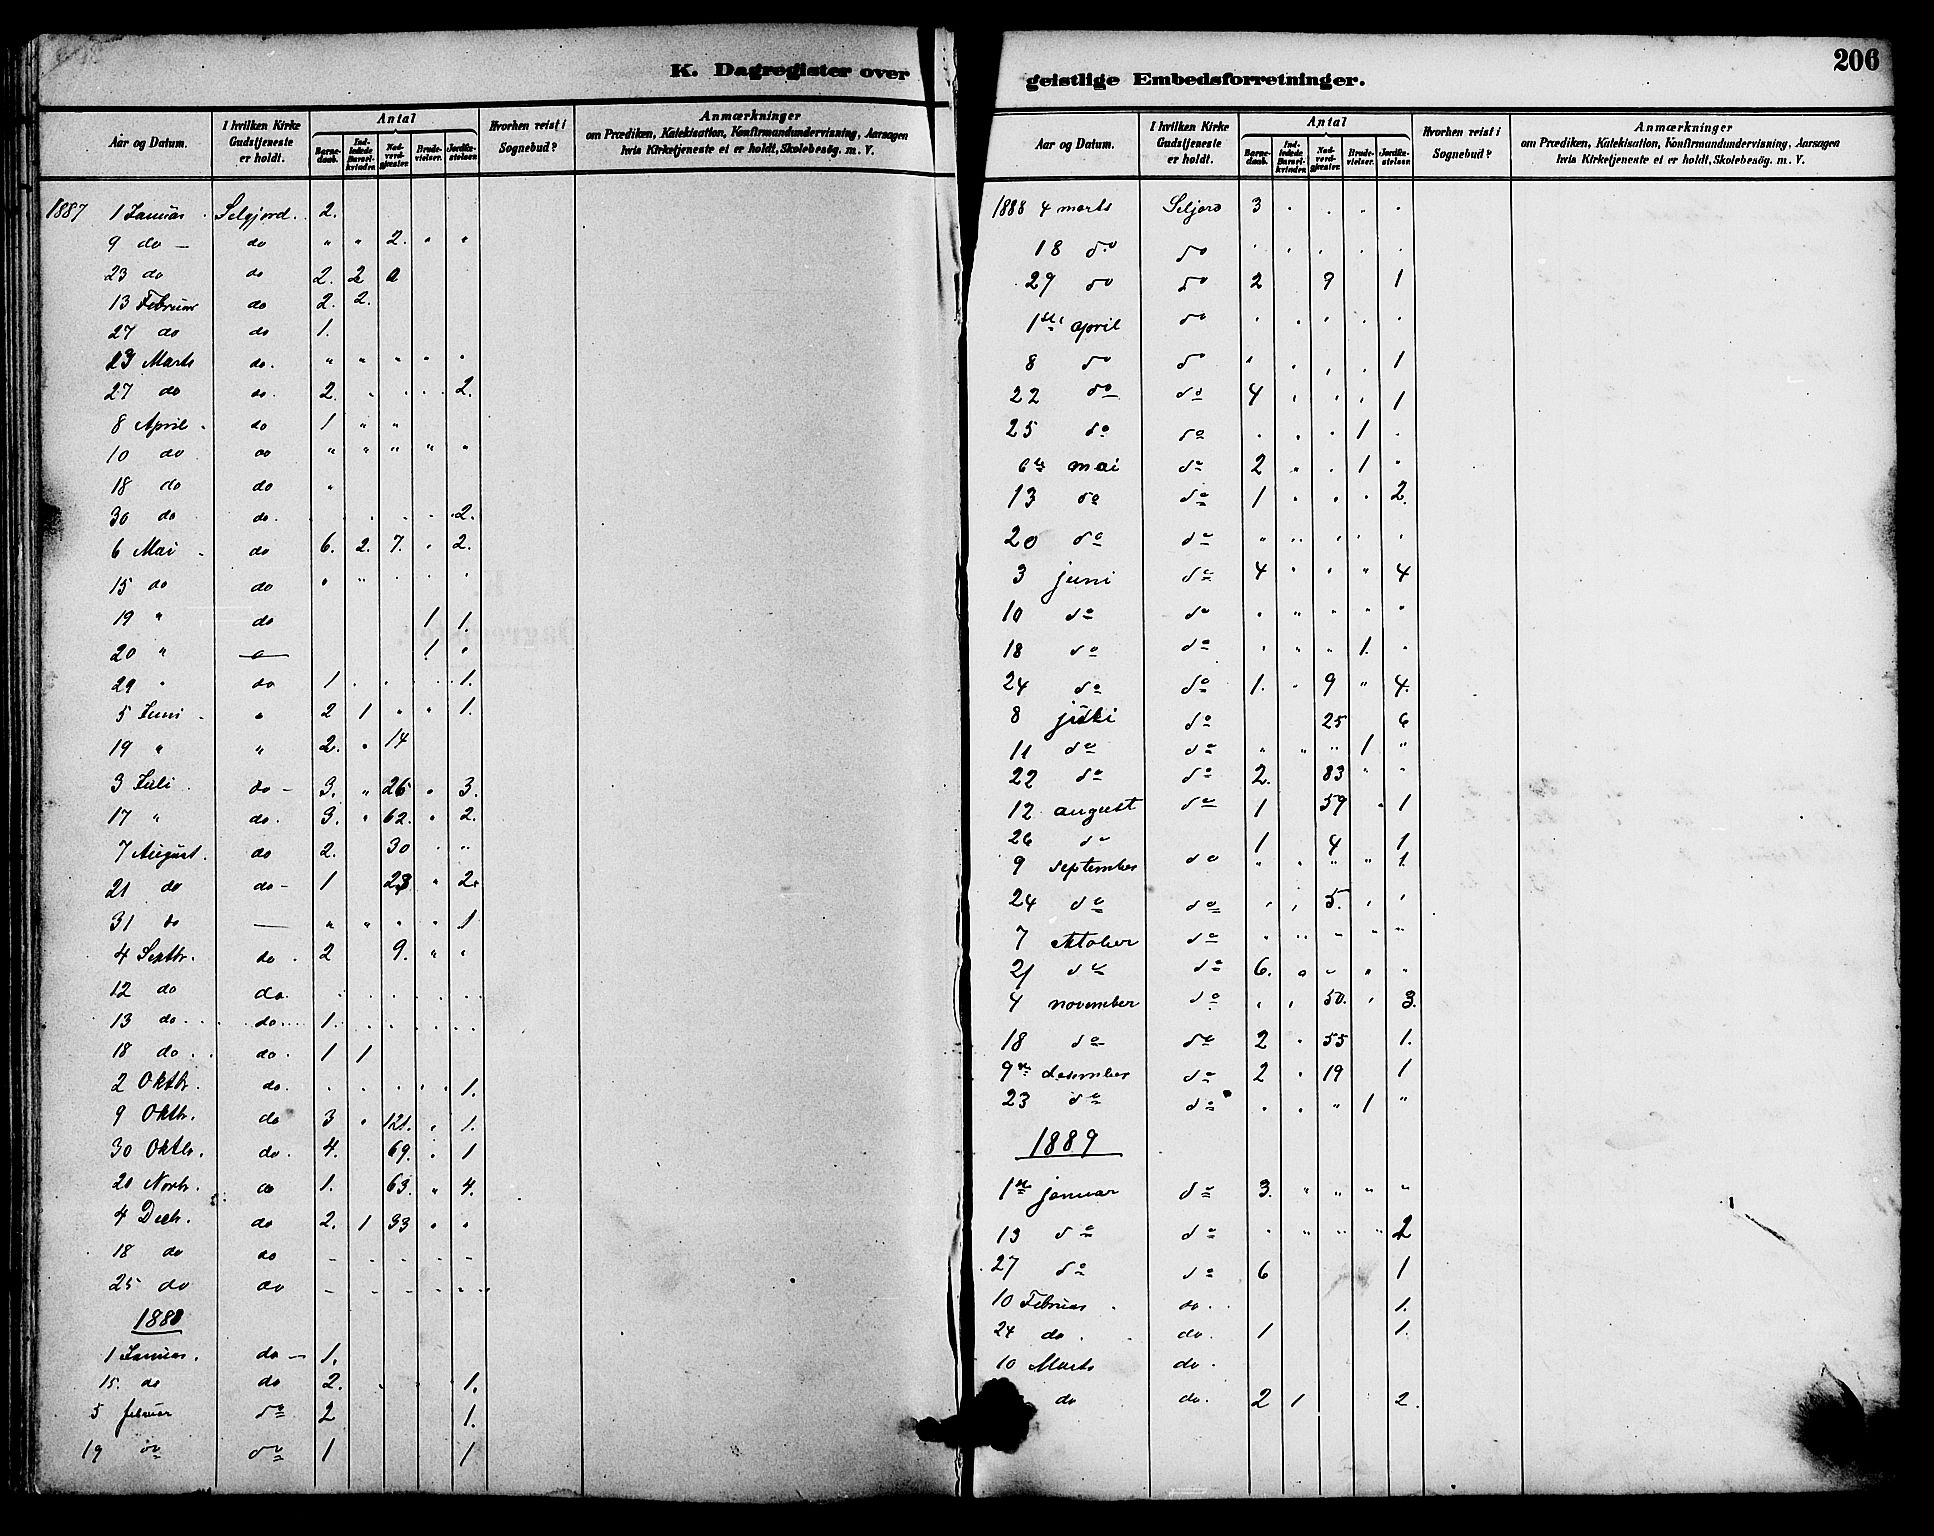 K. Dagregister over
Aar og Datum. I hvilken Kirke Gudstjeneste er holdt. Antal Barnedaab. Indledede Barselkvinder. Nadverdgjæster. Brudevielser. Jordfæstelser. Hvorhen reist i Sognebud? Anmærkninger om Prædiken, Katekisation, Konfirmandundervisning, Aarsagen hvis Kirketjeneste ei er holdt, Skolebesög. m. V.
1887 1 Januar. Selgjord. 2.
9 do — do " " 2. " "
23 do do 2. 2 0
13 Februar do 2. 2.
27 do do 1.
23 Marts do. " " " " "
27 do do. 2. . . . 2.
8 April. do 1 " "
10 do do " " " " "
18 do do "
30 do do. . . . . 2.
6 Mai. do 6. 2. 7. . 2.
15 do do " " . . .
19 " do 1 1.
20 " — 1 .
29 " do 1 . . . 1.
5 Juni. " 2 1 " " 1.
19 " " 2. . 14
3 Juli. do — 3. " 26 . 3.
17 " do. 3. " 62. . 2.
7 August. do 2. 30 . "
21 do do — 1 23 " 2.
31 do — " " " " 1
4 Septbr. do. 2 9. " "
12 do do. . . . . .
13 do. do. 1. . . . .
18 do. do. 1 1
2 Oktbr. do. . . . . 1.
9 Oktbr. do 3 . 121. . 1.
30 Oktbr. do. 4. 69. . 1
20 Novbr. do 1. 63. " 4.
4 Decbr. do 2. 1 33 . .
18 do do - . . . -
25 do do - . - . .
1888
1 Januar. do — 1.
15. do do 2. . 1.
5 februar do 2 1.
19 do do 1 1
geistlige Embedsforretninger.
206
Aar og Datum. I hvilken Kirke Gudstjeneste er holdt. Antal Barnedaab. Indledede Barselkvinder. Nadverdgjæster. Brudevielser. Jordfæstelser. Hvorhen reist i Sognebud? Anmærkninger om Prædiken, Katekisation, Konfirmandundervisning, Aarsagen hvis Kirketjeneste ei er holdt, Skolebesög. m. V.
1888 4 marts Seljord 3 . . . .
18 do do . . . . .
29 do do 2 9 1
1ste april do . . . . .
8 do do . . . 1
22 do do 4 . . . 1
25 do do . . . 1 .
6te mai do 2 " . 1 "
13 do do 1 " " " 2.
20 do do " " . . .
3 juni do 4 " " " 4
10 do do " " " " "
18 do do . " " 1. .
24 do do 1. . 9 " 4.
8 juli do 25 6
11 do do " " " 1 "
22 do do 2. 83 " "
12 august do 1 59 . 1
26 do 1 4 1
9 september do " . " " 1.
24 do do . . 5. . .
7 oktober do . " " " "
21 do do 6. . " " "
4 november do . . 50. . 3.
18 do do 2 . 55 1.
9de desember do 2 . 19 1
23 do do . . " 1 "
1889
1ste januar do 3. " " " "
13 do do . " " " 2
27 do do 6 1
10 Februar. do. 1.
24 do. do. 1 1.
10 Marts do.
do do. 2 1 2.